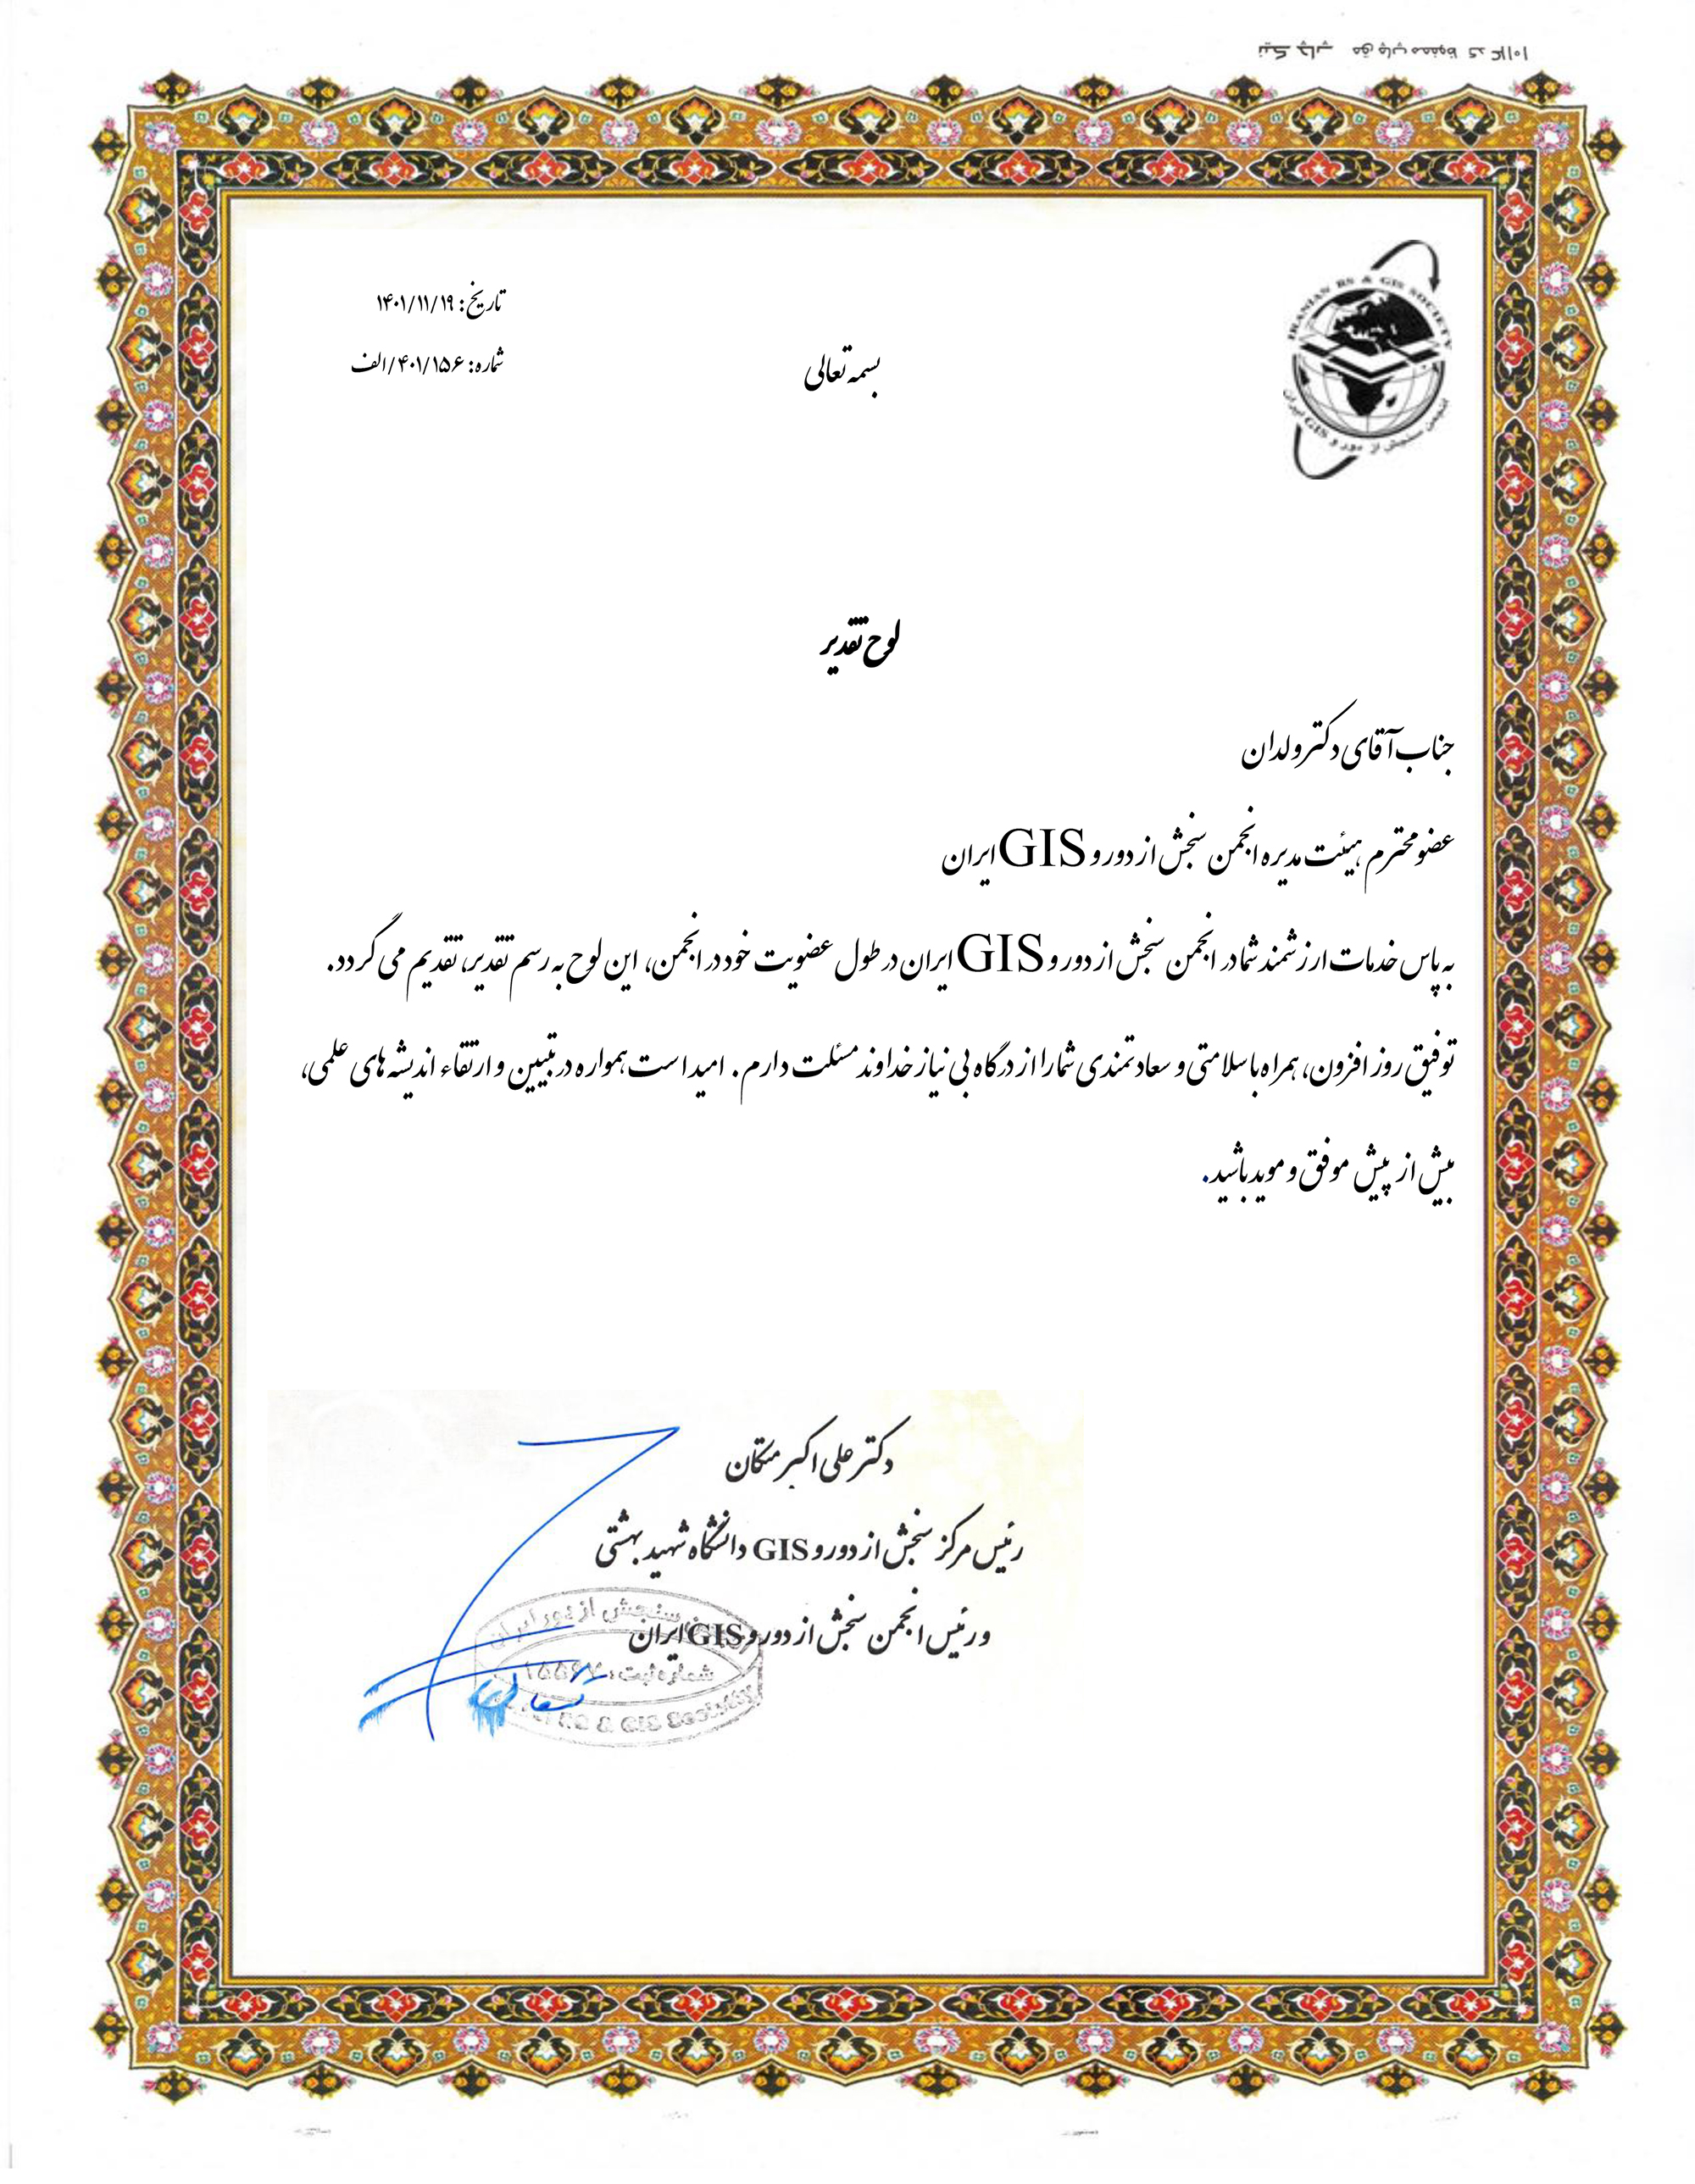 تاریخ: ۱۴۰۱/۱۱/۱۹
شماره: ۴۰۱/۱۵۶/الف
بسمه تعالی
IRANIAN RS & GIS SOCIETY
انجمن سنجش از دور و GIS ایران
لوح تقدیر
جناب آقای دکتر ولدان
عضو محترم هیئت مدیره انجمن سنجش از دور و GIS ایران
به پاس خدمات ارزشمند شما در انجمن سنجش از دور و GIS ایران در طول عضویت خود در انجمن، این لوح به رسم تقدیر، تقدیم می گردد.
توفیق روز افزون، همراه با سلامتی و سعادتمندی شما را از درگاه بی نیاز خداوند مسئلت دارم. امید است همواره در تبیین و ارتقاء اندیشه های علمی،
بیش از پیش موفق و موید باشید.
دکتر علی اکبر متکان
رئیس مرکز سنجش از دور و GIS دانشگاه شهید بهشتی
و رئیس انجمن سنجش از دور و GIS ایران
سنجش از دور ایران
شماره ثبت:
RS & GIS Society